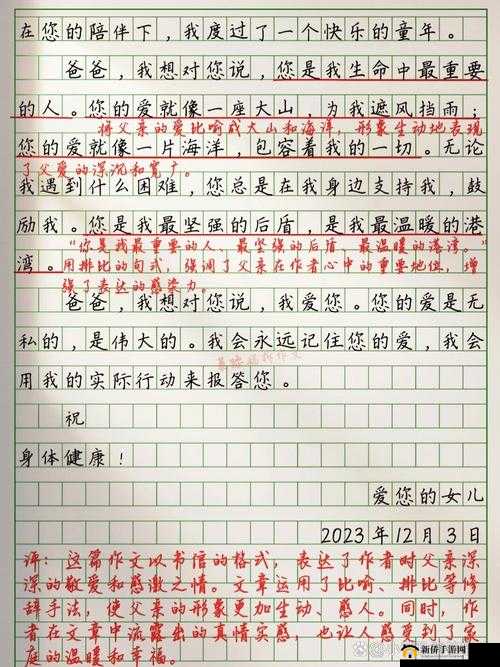 在您的陪伴下，我度过了一个快乐的童年。
爸爸，我想对您说，您是我生命中最重要
的人。您的爱就像一座大山，为我遮风挡雨；
将父亲的爱比喻成大山和海洋，形象生动地表现
您的爱就像一片海洋，包容着我的一切。无论
了父爱的深沉和宽广。
我遇到什么困难，您总是在我身边支持我，鼓
励我。您是我最坚强的后盾，是我最温暖的港
“你是我最重要的人、最坚强的后盾、最温暖的港湾。”
湾。用排比的句式，强调了父亲在作者心中的重要地位，增
强了表达的感染力。
爸爸，我想对您说，我爱您。您的爱是无
私的，是伟大的。我会永远记住您的爱，我会
用我的实际行动来报答您。
祝
身体健康！
爱您的女儿
2023年12月3日
评：这篇作文以书信的格式，表达了作者对父亲深
深的敬爱和感激之情。文章运用了比喻、排比等修
辞手法，使父亲的形象更加生动、感人。同时，作
者在文章中流露出的真情实感，也让人感受到了家
庭的温暖和幸福。
新侨手游网